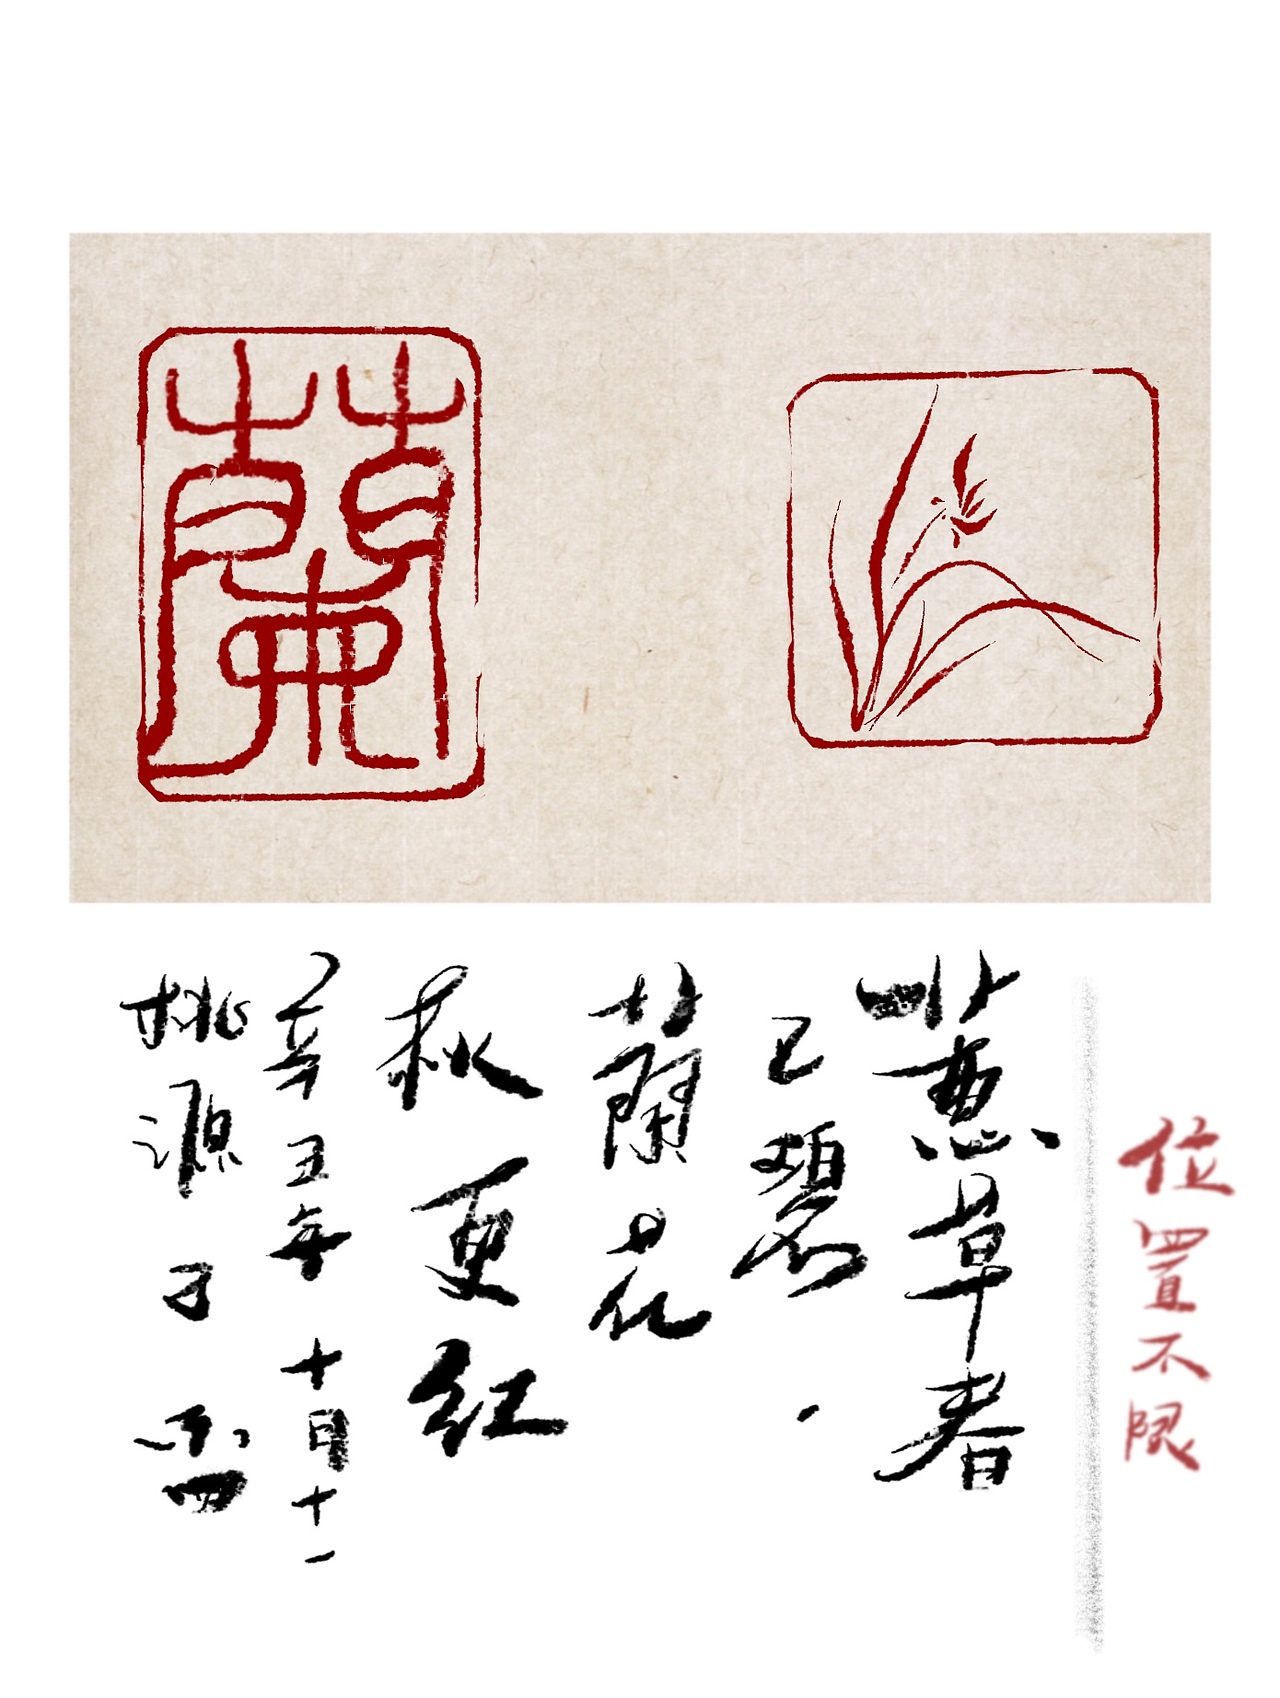 蘭
位置不限
蕙草春
已碧
蘭花
秋更红
辛丑年十月十一
桃源子